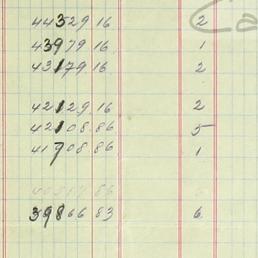 Ca
44529 16 2
43979 16 1
43179 16 2
42129 16 2
42108 86 5
41908 86 1
39866 83 6